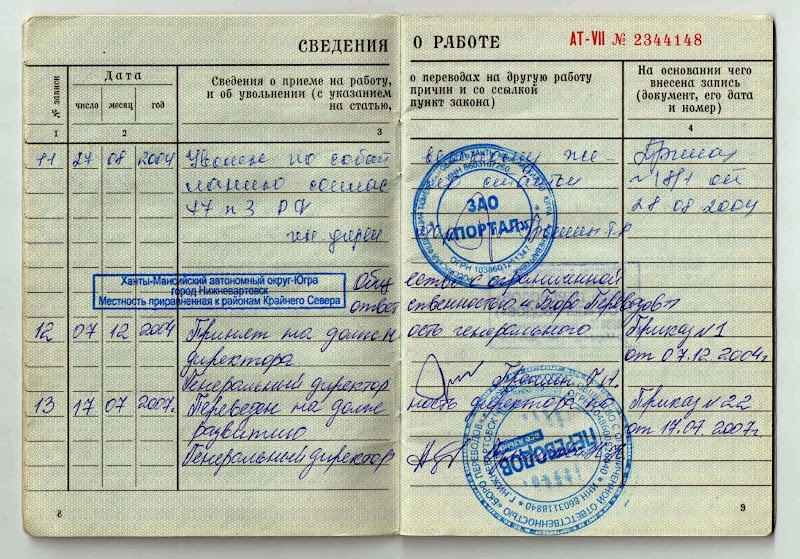 СВЕДЕНИЯ О РАБОТЕ AT-VII № 2344148
№ записи
Дата
число месяц год
Сведения о приеме на работу, о переводах на другую работу
и об увольнении (с указанием причин и со ссылкой
на статью, пункт закона)
На основании чего
внесена запись
(документ, его дата
и номер)
1 2 3 4
11 27 08 2004 Уволен по собст Приказ
ланию соглас статьи
77 п 3 РФ 28 08 2004
ЗАО
«ПОРТАЛ»
Ханты-Мансийский автономный округ-Югра
город Нижневартовск
Местность приравненная к районам Крайнего Севера
Общество с ограниченной
ответственностью «Бюро Переводов»
12 07 12 2004 Принят на должность генерального Приказ №1
директора от 07.12.2004г
Генеральный директор
13 17 07 2007г. Переведен на должность директора по Приказ №22
развитию от 17.07.2007г.
Генеральный директор
ПЕРЕВОДОВ
ИНН 8603118840
8 9